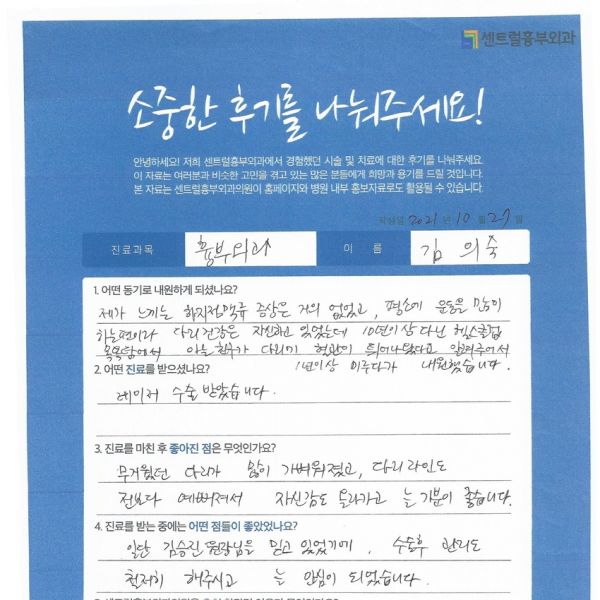 센트럴흉부외과
소중한 후기를 나눠주세요!
안녕하세요! 저희 센트럴흉부외과에서 경험했던 시술 및 치료에 대한 후기를 나눠주세요
이 자료는 여러분과 비슷한 고민을 겪고 있는 많은 분들에게 희망과 용기를 드릴 것입니다.
본 자료는 센트럴흉부외과의원이 홈페이지와 병원 내부 홍보자료로도 활용될 수 있습니다.
작성일 2021 년 10 월 27 일
진료과목 흉부외과 이 름 김 의숙
1. 어떤 동기로 내원하게 되셨나요?
제가 느끼는 하지정맥류 증상은 거의 없었고, 평소에 운동을 많이
하는편이라 다리건강은 자신하고 있었는데 10년이상 다닌 헬스클럽
목욕탕에서 아는 친구가 다리에 혈관이 튀어나왔다고 알려주어서
2. 어떤 진료를 받으셨나요? 1년이상 미루다가 내원했습니다.
레이저 수술 받았습니다.
3. 진료를 마친 후 좋아진 점은 무엇인가요?
무거웠던 다리가 많이 가벼워졌고, 다리라인도
전보다 예뻐져서 자신감도 올라가고 늘 기분이 좋습니다.
4. 진료를 받는 중에는 어떤 점들이 좋았었나요?
일단 김승진 원장님을 믿고 있었기에, 수술후 관리도
철저히 해주시고 늘 안심이 되었습니다.